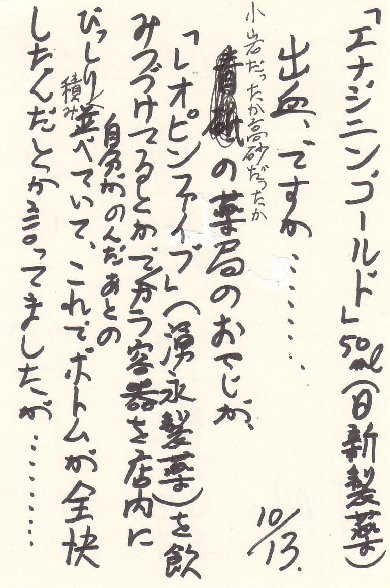 「エナジニンゴールド」50ml(日新製薬)
出血、ですか………
小岩だったか高砂だったか
の薬局のおやじが、
「レオピンファイブ」(湧永製薬)を飲
みつづけてるとかでカラ容器を店内に
自分がのんだあとの
びっしり積み並べていて、これでボトムが全快
したんだとか言ってましたが………
10/13.